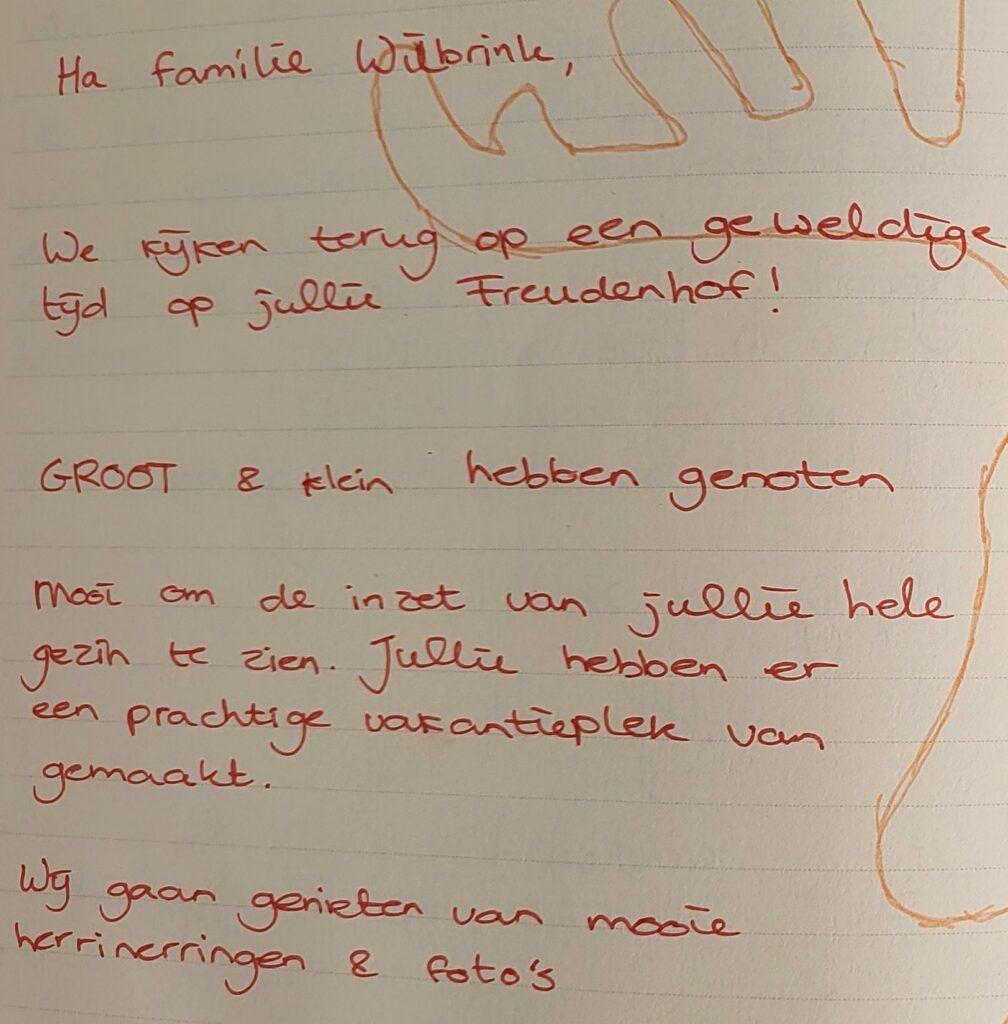 Ha familie Wilbrink,
We kijken terug op een geweldige
tijd op jullie Freudenhof!
GROOT & klein hebben genoten
Mooi om de inzet van jullie hele
gezin te zien. Jullie hebben er
een prachtige vakantieplek van
gemaakt.
Wij gaan genieten van mooie
herrinerringen & foto's